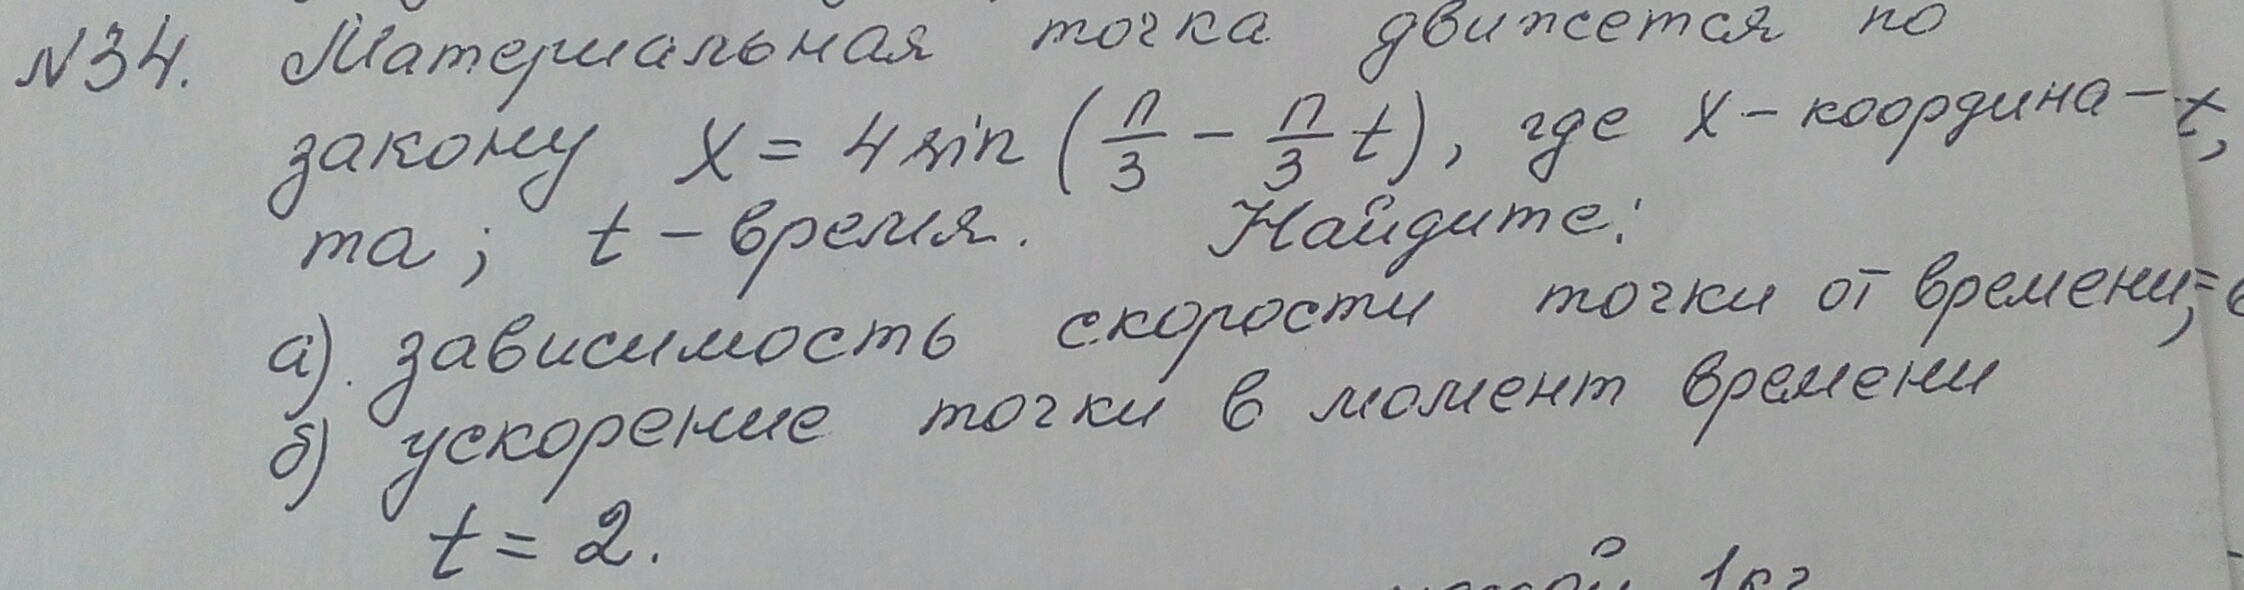 №34. Материальная точка движется по
закону x = 4 sin (π/3 − π/3 t), где x – координа-
та; t – время. Найдите:
а). зависимость скорости точки от времени;
б) ускорение точки в момент времени
t = 2.
1кг